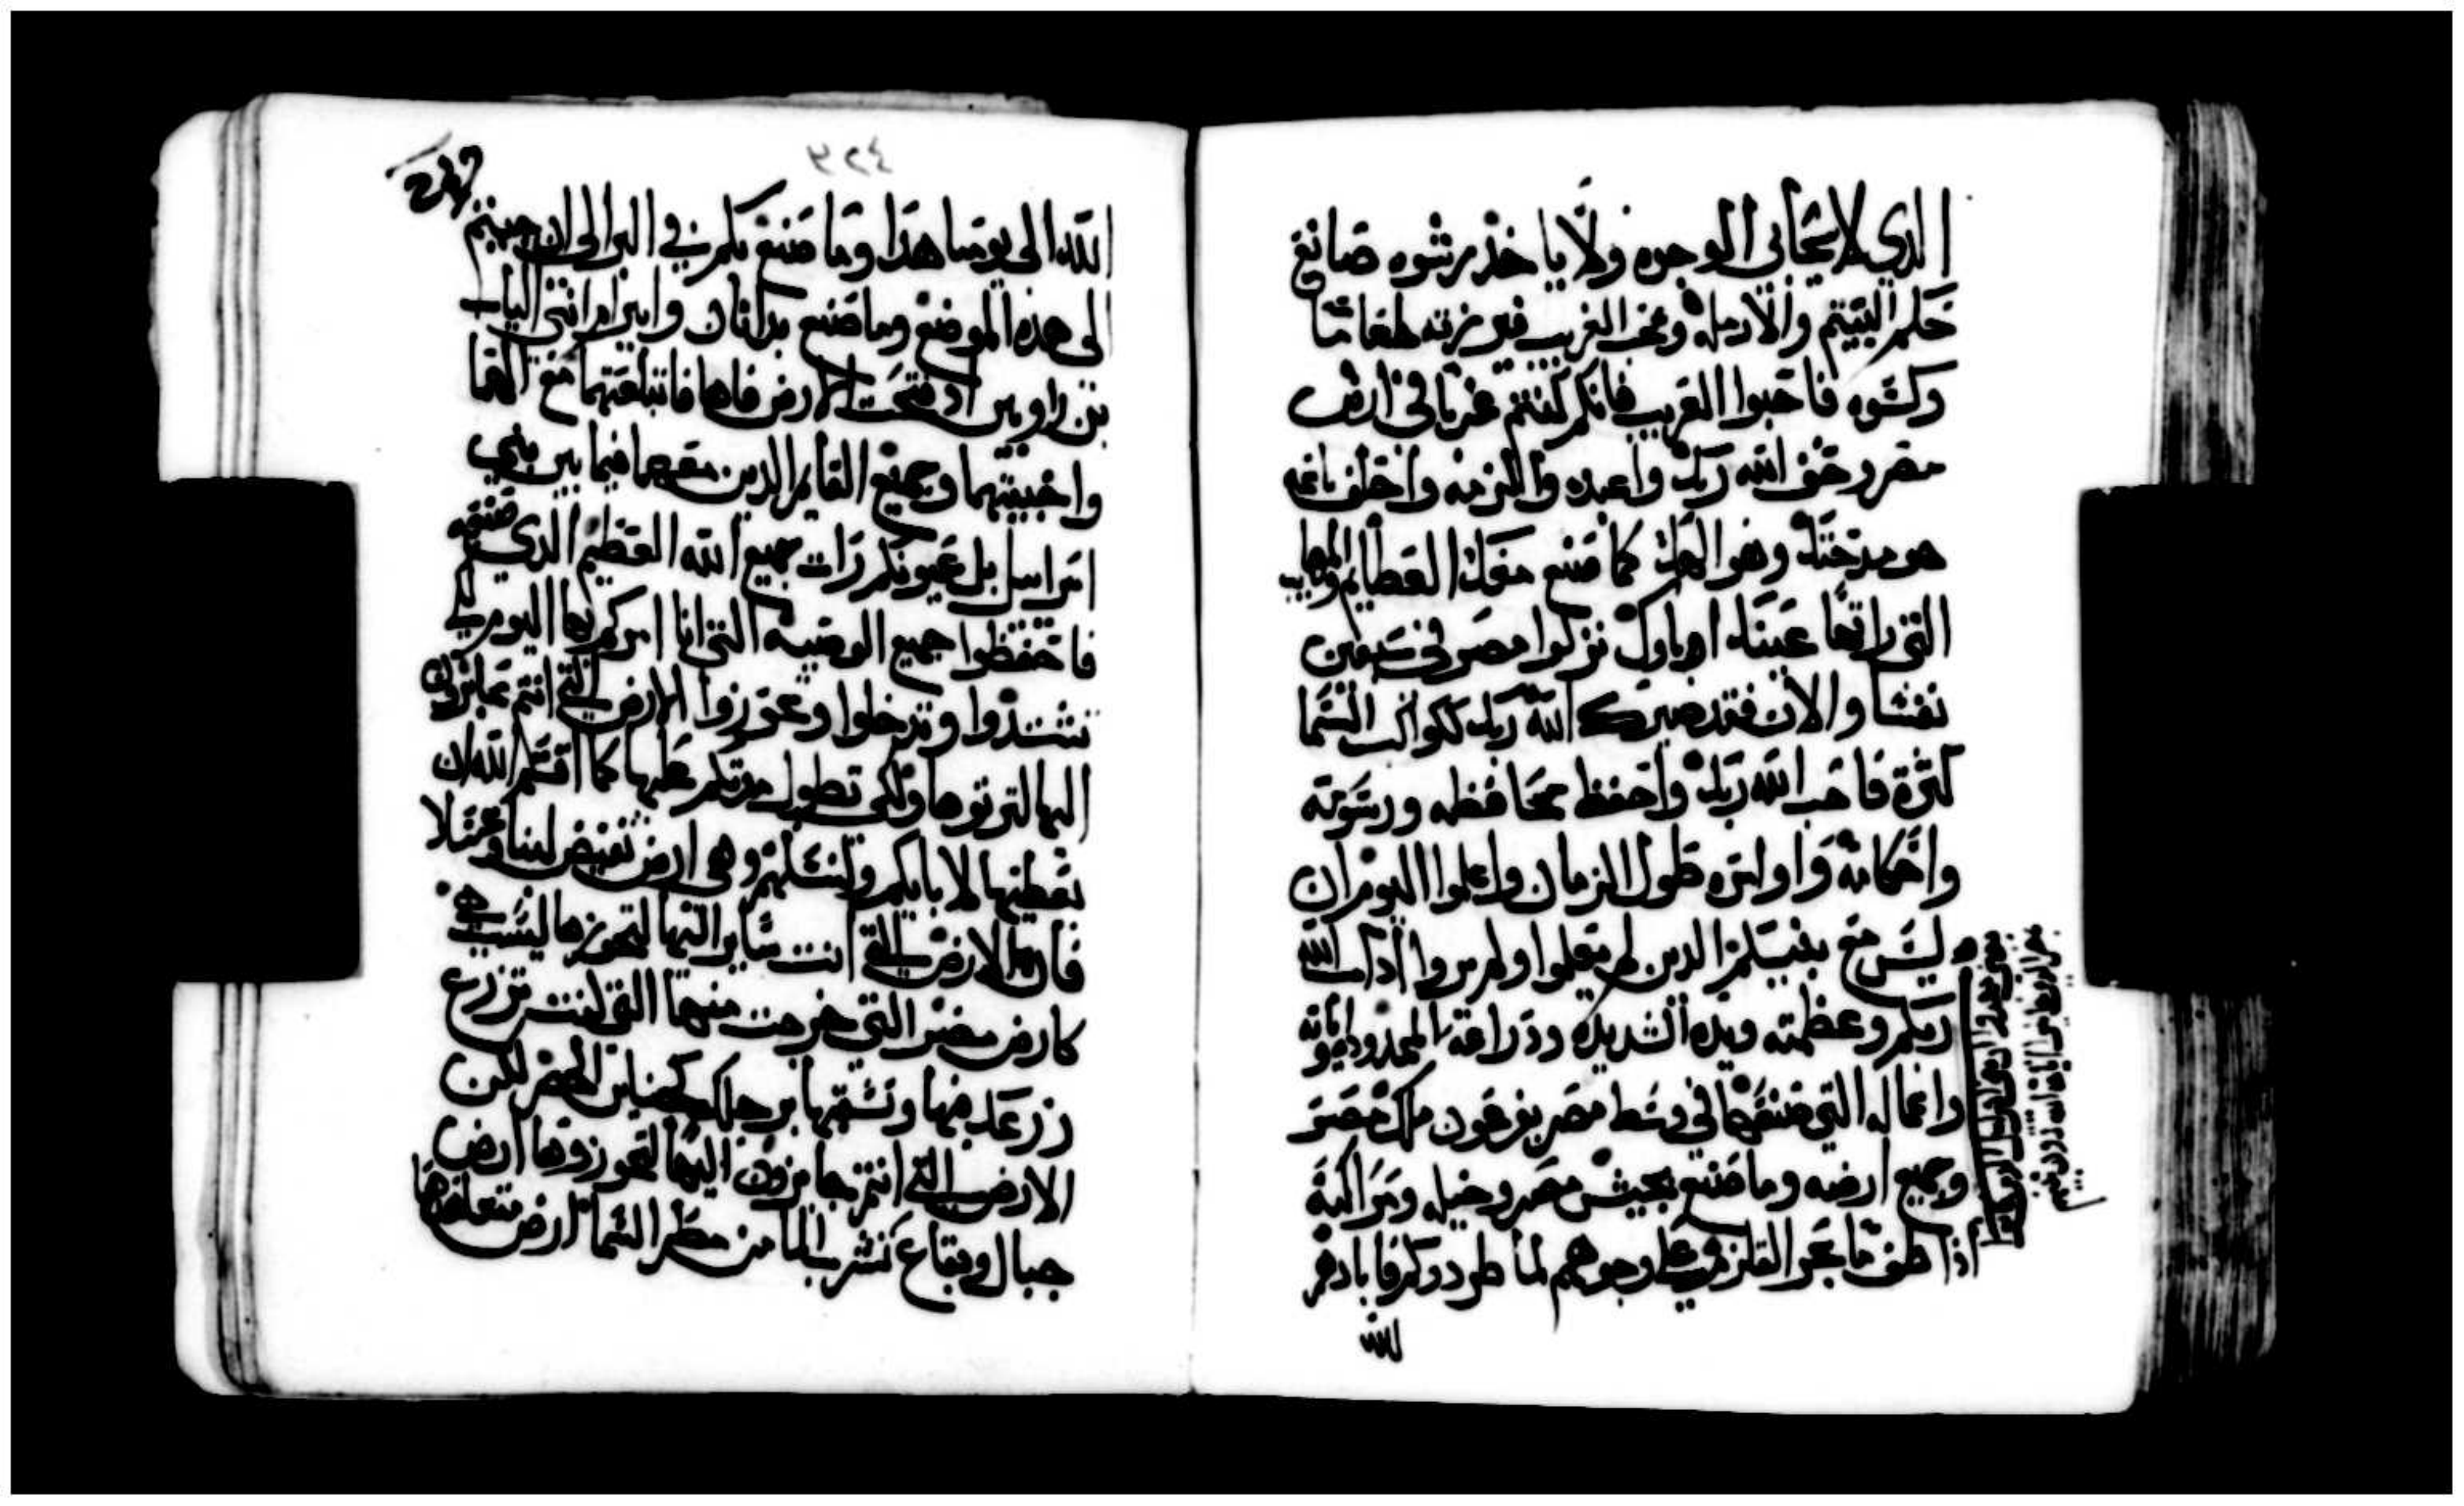 الدي لا يحابي الوجوه ولا ياخذ رشوه صانع
حكم اليتيم والارمله ومحب الغريب فيرزقه طعاما
وكسوه فاحبوا الغريب فانكم كنتم غربا في ارض
مصر وخف الله ربك واعبده والزمه واحلف باسمه
هو مدحتك وهو الهك كما صنع معك العظايم والعجايب
التي راتها عيناك اوباوك نزلوا مصر في سبعين
نفسا والان فقد صيرك الله ربك ككواكب السما
كثرة فاحب الله ربك واحفظ محافظه ورسومه
واحكامه واوامره طول الزمان واعلموا اليوم ان
ليس مع بنيكم الدين لم يعلموا ولم يروا اداب الله
ربكم وعظمته ويده الشديده ودراعه الممدوده واياته
واعماله التي صنعها في وسط مصر بفرعون ملك مصر
وجميع ارضه وما صنع بجيش مصر وخيله ومراكبه
اذ اطف ما بحر القلزم علي وجوههم لما طردوكم فابادهم
الله
٤٢٣
الله الى يومنا هدا وما صنع بكم في البر الى ان جيتم
الى هده الموضع وما صنع بداثان وابيرام ابني الياب
بن راوبين اد فتحت الارض فاها فابتلعتهما مع الهما
واخبيتهما وجميع القايم الدين معهما فيما بين بني
اسراييل بل عيونكم رات جميع الله العظيم الدي صنعه
فاحفظوا جميع الوصيه التي انا امركم بها اليوم لكي
تشتدوا وتدخلوا وتحوزوا الارض التي انتم عابرون
اليها لترتوها ولكي تطول مدتكم عليها كما اقسم الله ان
يعطيها لابايكم ولنسلهم وهي ارض تفيض لبنا وعسلا
فان الارض التي انت ساير اليها لتحوزها ليست هي
كارض مصر التي خرجت منها التي كنت تزرع
زرعك فيها وتسقيها برجلك كجنان الخضر لكن
الارض التي انتم جايزون اليها لتحوزوها ارض
جبال وبقاع تشرب الما من مطر السما ارض يتعاهدها